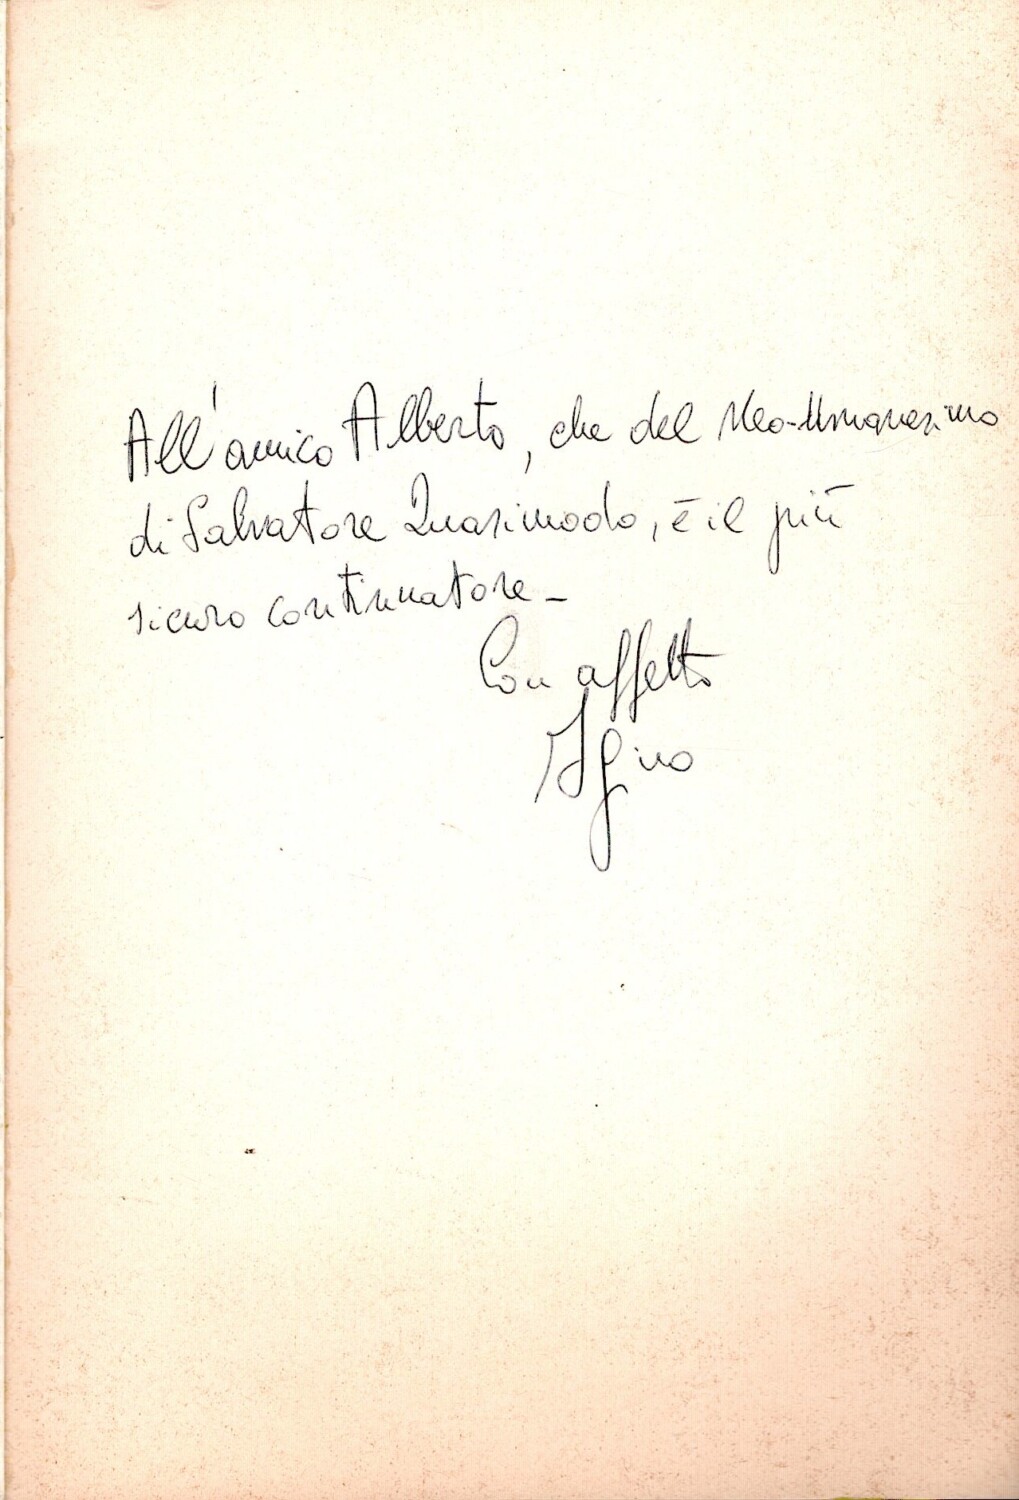 All'amico Alberto, che del Neo-Umanesimo
di Salvatore Quasimodo, è il più
sicuro continuatore -
Con affetto
Igino